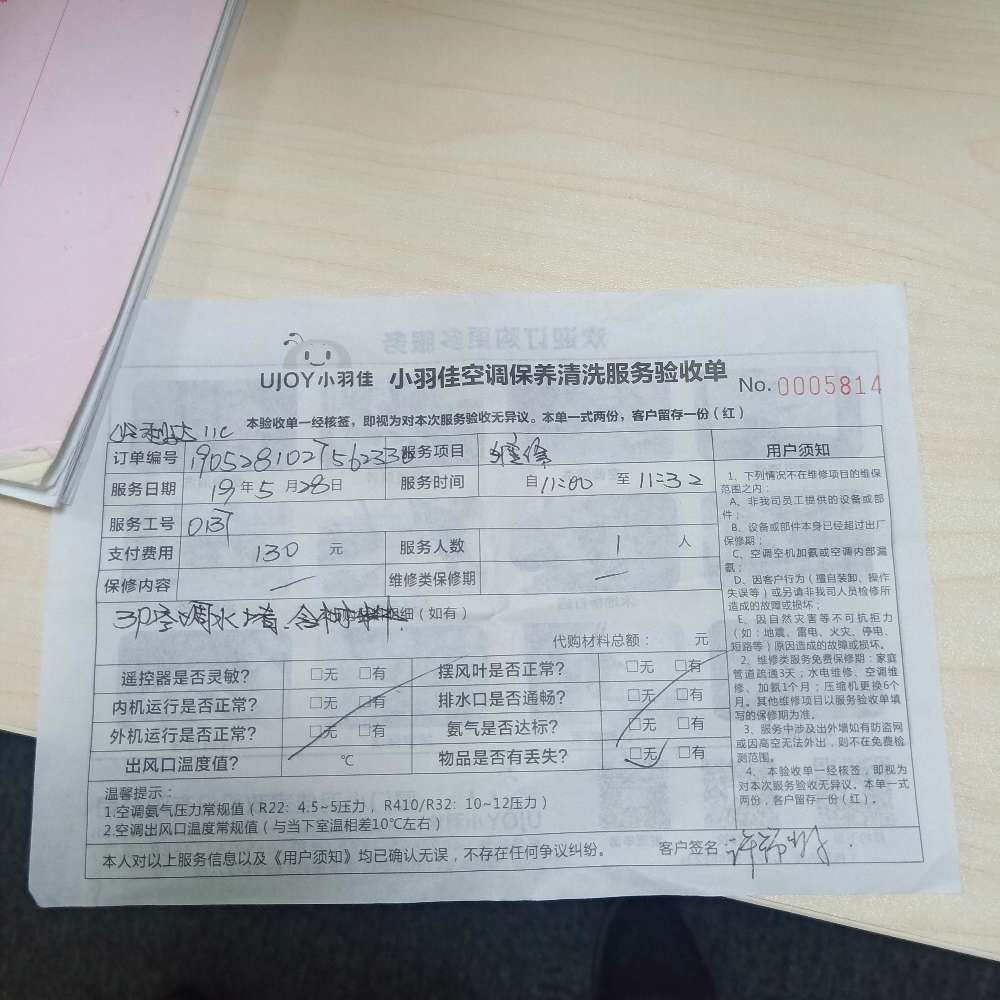 UJOY小羽佳 小羽佳空调保养清洗服务验收单 No. 0005814
本验收单一经核签，即视为对本次服务验收无异议。本单一式两份，客户留存一份（红）
11C
订单编号 服务项目 维修
服务日期 19年5月28日 服务时间 自11:00 至 11:32
服务工号
支付费用 130 元 服务人数 1 人
保修内容 — 维修类保修期 —
3P空调水堵 细（如有）
代购材料总额： 元
遥控器是否灵敏? □无 □有 摆风叶是否正常? □无 □有
内机运行是否正常? □无 □有 排水口是否通畅? □无 □有
外机运行是否正常? □无 □有 氨气是否达标? □无 □有
出风口温度值? ℃ 物品是否有丢失? □无 □有
温馨提示：
1.空调氨气压力常规值（R22：4.5~5压力，R410/R32：10~12压力）
2.空调出风口温度常规值（与当下室温相差10℃左右）
本人对以上服务信息以及《用户须知》均已确认无误，不存在任何争议纠纷。 客户签名
用户须知
1、下列情况不在维修项目的维保
范围之内：
A、非我司员工提供的设备或部
件；
B、设备或部件本身已经超过出厂
保修期；
C、空调空机加氨或空调内部漏
氨；
D、因客户行为（擅自装卸、操作
失误等）或另请非我司人员检修所
造成的故障或损坏；
E、因自然灾害等不可抗拒力
（如：地震、雷电、火灾、停电、
短路等）原因造成的故障或损坏。
2、维修类服务免费保修期：家庭
管道疏通3天；水电维修、空调维
修、加氨1个月；压缩机更换6个
月。其他维修项目以服务验收单填
写的保修期为准。
3、服务中涉及出外墙如有防盗网
或因高空无法外出，则不在免费检
测范围。
4、本验收单一经核签，即视为
对本次服务验收无异议。本单一式
两份，客户留存一份（红）。